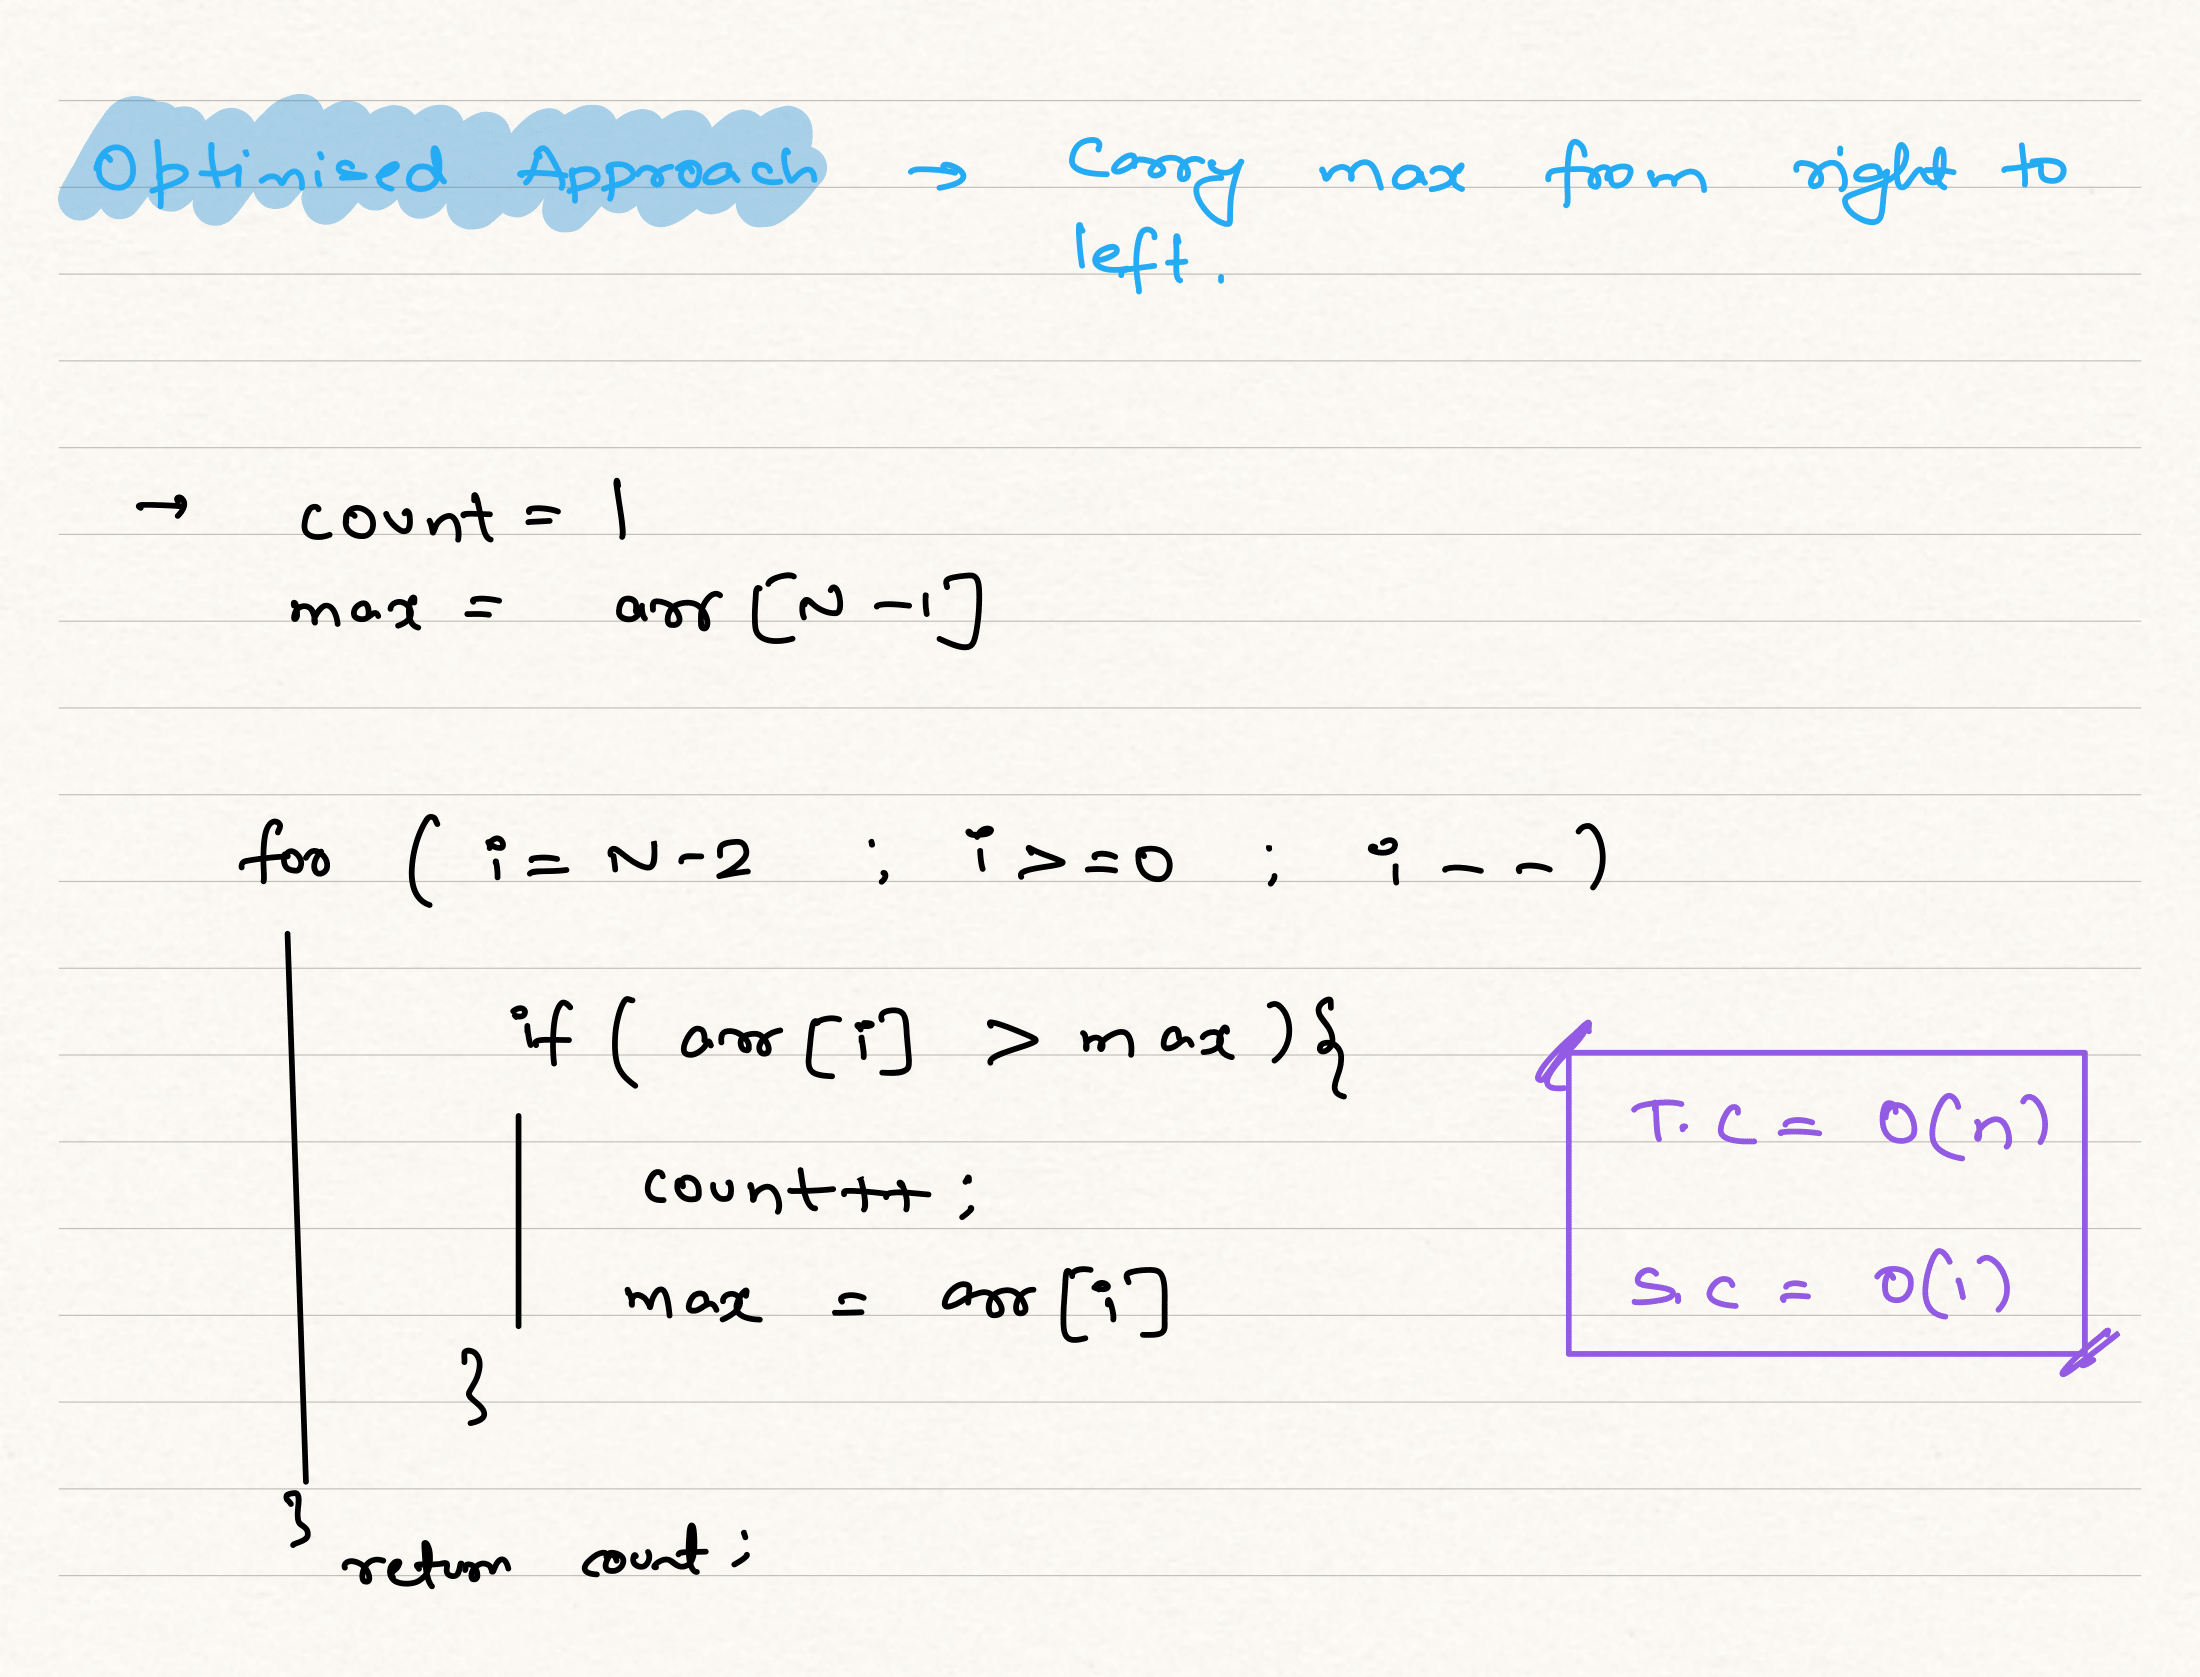 Optimised Approach → Carry max from right to
left.
→ count = 1
max = arr[N-1]
for ( i = N-2 ; i >= 0 ; i-- )
if ( arr[i] > max ) {
count++ ;
max = arr[i]
}
}
return count ;
T.C = O(n)
S.C = O(1)